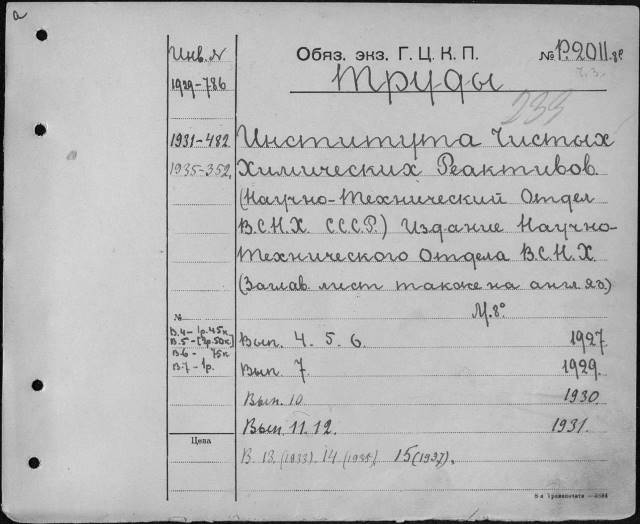 а
Инв. N
Обяз. экз. Г. Ц. К. П.
№ Р.2011.8º
ч.з.
1929-786
Труды
233
1931-482
Института Чистых
1935-352,
Химических Реактивов.
(Научно-Технический Отдел
В.С.Н.Х. С.С.С.Р.) Издание Научно-
Технического Отдела В.С.Н.Х.
(Заглав. лист также на англ яз.)
М. 8º
№
В.4- 1р.45к
В.5-[2р.50к]
В.6- 75к
В.7-1р.
Вып. 4. 5. 6. 1927.
Вып. 7 1929.
Вып. 10 1930.
Вып. 11. 12. 1931.
Цена
В 13 (1933). 14 (1935). 15 (1937).